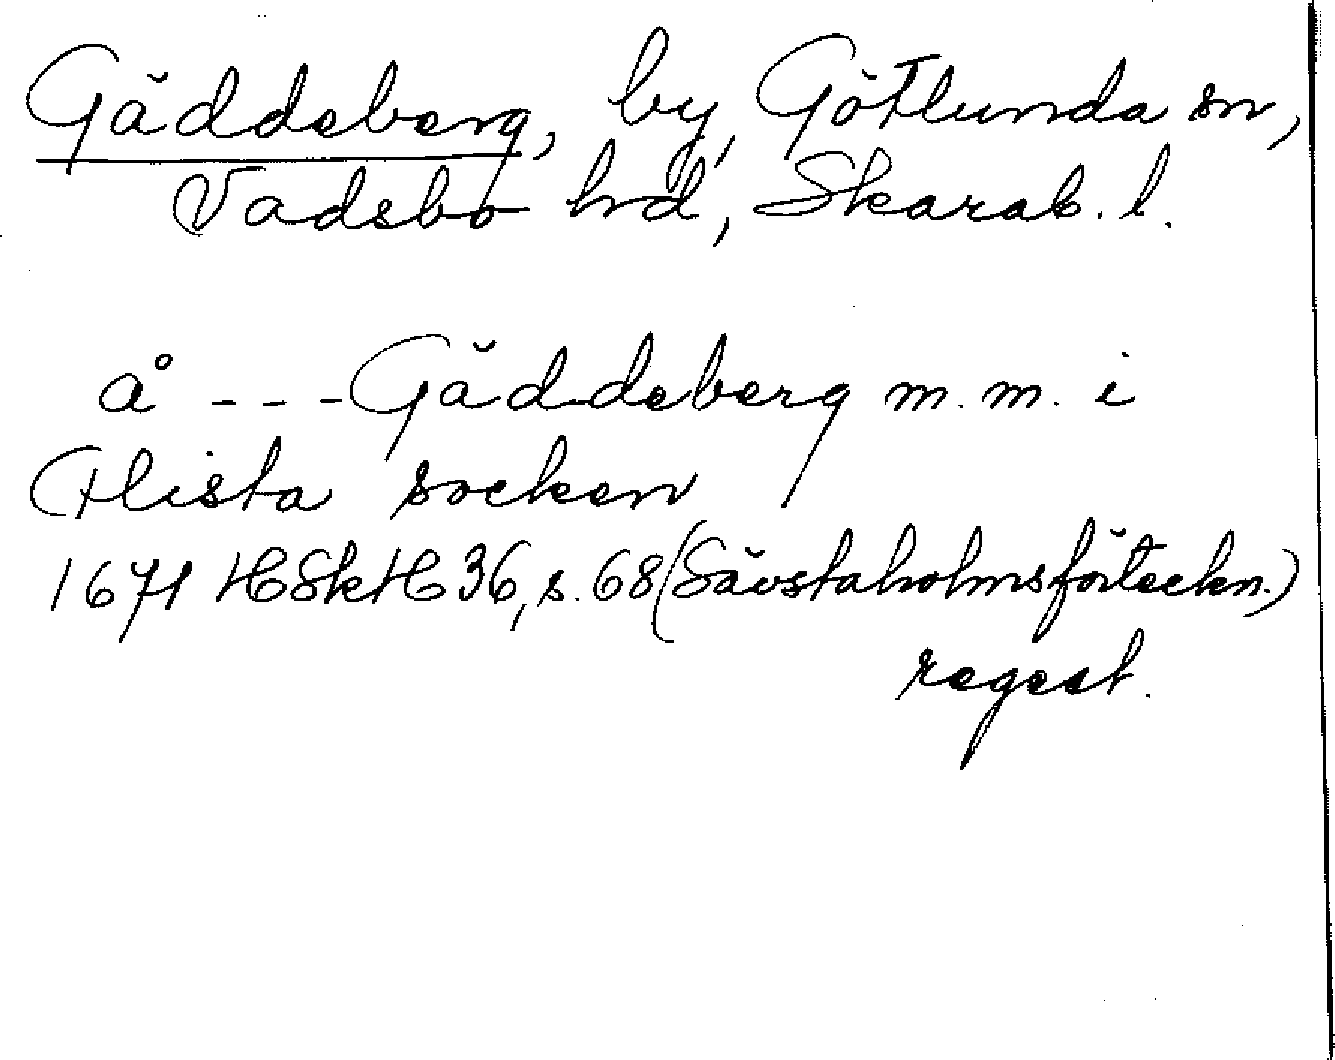 Gäddeberg, by, Götlunda sn,
Vadsbo hd, Skarab. l.
å - - - Gäddeberg m. m. i
Flista socken
1671 HSkH 36, s. 68 (Sävstaholmsförteckn.)
regest.